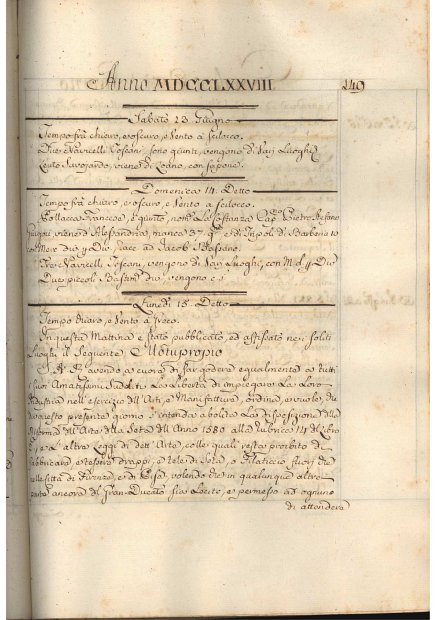 Anno MDCCLXXVIII
140
Sabato 13 Giugno
Tempo frà chiaro, e oscuro, e Vento a Scilocco.
Due Navicelli Toscani, sono giunti, vengono di Varj Luoghi
Leuto Savojardo, viene di con sapone.
Domenica 14. Detto
Tempo frà chiaro, e oscuro e Vento a Scilocco.
Pollacca Francese, è giunto, nom.ª La Costanza Cap.
viene d'Alessandria, manca 37 g.i e di Tripoli di Barberia 10
con Merc. div. p Div. race. ad Jacob Bassano.
Tre Navicelli Toscani, vengono di Varj Luoghi, con M. d. p Div.
Due piccoli Bastim.ti div. vengono c. s.
Lunedì 15. Detto
Tempo chiaro, e Vento a Greco.
In questa Mattina è stato pubblicato, ed affissato nei soliti
Luoghi il seguente Motuproprio
S. A. R. avendo a cuore di far godere egualmente a tutti
i suoi Amatissimi Sudditi La Libertà di impiegare La Loro
Industria nell'esercizio dell'Arti, e Manifatture, ordina, e vuole, che
da questo presente giorno s'intenda abolita La disposizione della
Riforma dell'Arte della Seta dell'Anno 1580 alla Rubrica 14 del Libro
e L'altre Leggi di dett'Arte, colle quali resta proibito di
fabbricare, e tessere drappi, e tele di Seta, o Filaticcio fuori che
nelle Città di Firenze, e di Pisa, volendo che in qualunque altra
parte ancora del Gran-Ducato sia Lecito, e permesso ad ognuno
di attendere